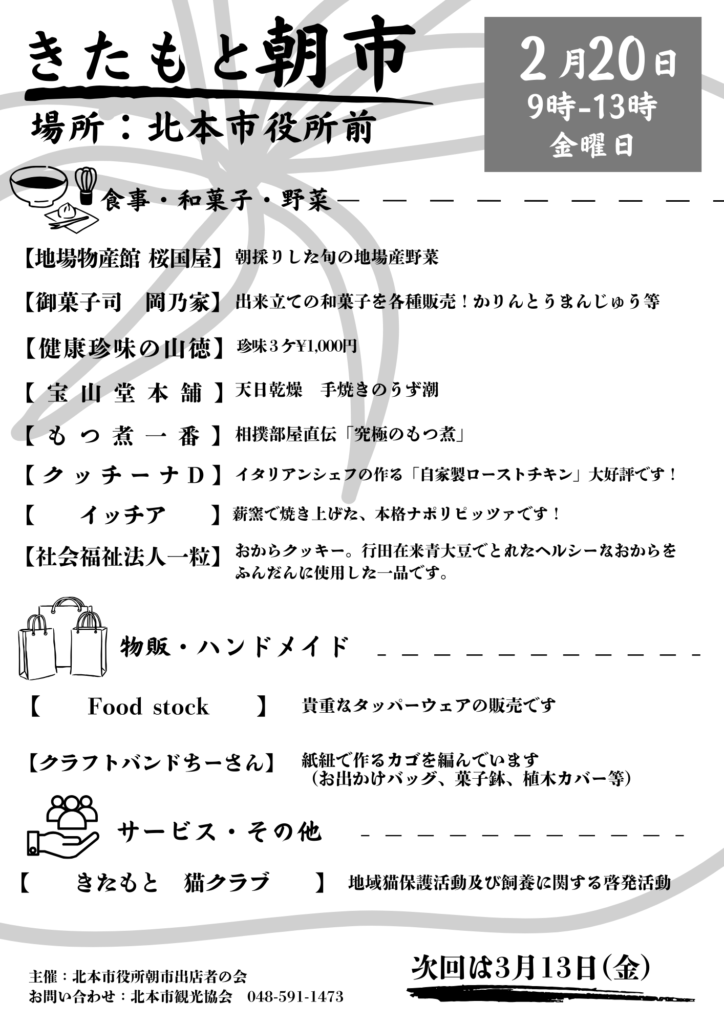 きたもと朝市
場所：北本市役所前
2月20日
9時-13時
金曜日
食事・和菓子・野菜
【地場物産館 桜国屋】 朝採りした旬の地場産野菜
【御菓子司　岡乃家】 出来立ての和菓子を各種販売！かりんとうまんじゅう等
【健康珍味の山徳】 珍味３ケ¥1,000円
【宝山堂本舗】 天日乾燥　手焼きのうず潮
【もつ煮一番】 相撲部屋直伝「究極のもつ煮」
【クッチーナD】 イタリアンシェフの作る「自家製ローストチキン」大好評です！
【イッチア】 薪窯で焼き上げた、本格ナポリピッツァです！
【社会福祉法人一粒】 おからクッキー。行田在来青大豆でとれたヘルシーなおからを
ふんだんに使用した一品です。
物販・ハンドメイド
【Food stock】 貴重なタッパーウェアの販売です
【クラフトバンドちーさん】 紙紐で作るカゴを編んでいます
（お出かけバッグ、菓子鉢、植木カバー等）
サービス・その他
【きたもと　猫クラブ】 地域猫保護活動及び飼養に関する啓発活動
主催：北本市役所朝市出店者の会
お問い合わせ：北本市観光協会　048-591-1473
次回は3月13日(金)